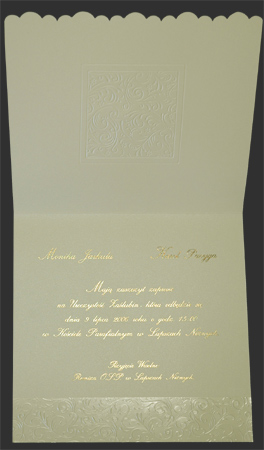 Monika
Mają zaszczyt zaprosić
na Uroczystość Zaślubin, która odbędzie się
dnia 9 lipca 2006 roku o godz. 15.00
w Kościele Parafialnym w Łapszach Niżnych
Przyjęcie Weselne
Remiza O.S.P w Łapszach Niżnych